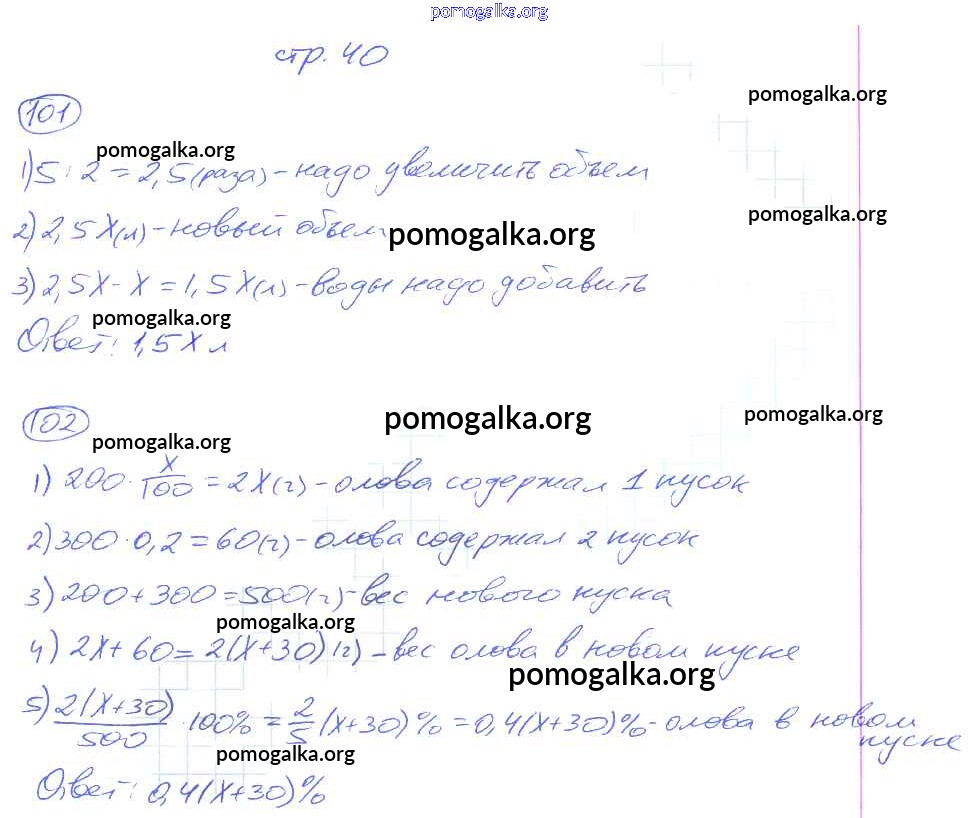 pomogalka.org
стр. 40
pomogalka.org
101
pomogalka.org
1) 5 : 2 = 2,5 (раза) - надо увеличить объем
pomogalka.org
2) 2,5X (л) - новый объем
pomogalka.org
3) 2,5X - X = 1,5X (л) - воды надо добавить
pomogalka.org
Ответ: 1,5X л
102
pomogalka.org
pomogalka.org
pomogalka.org
1) 200 · X/100 = 2X (г) - олова содержал 1 кусок
2) 300 · 0,2 = 60 (г) - олова содержал 2 кусок
3) 200 + 300 = 500 (г) - вес нового куска
pomogalka.org
4) 2X + 60 = 2(X+30) (г) - вес олова в новом куске
pomogalka.org
5) 2(X+30)/500 · 100% = 2/5 (X+30)% = 0,4(X+30)% - олова в новом
куске
pomogalka.org
Ответ: 0,4(X+30)%